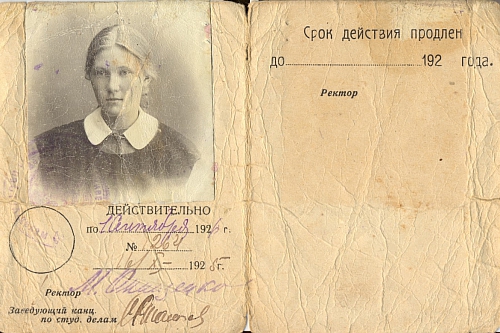 ДЕЙСТВИТЕЛЬНО
по 1 Октября 1926 г.
№ 264
X 1925 г.
Ректор
Заведующий канц.
по студ. делам
Срок действия продлен
до 192 года.
Ректор